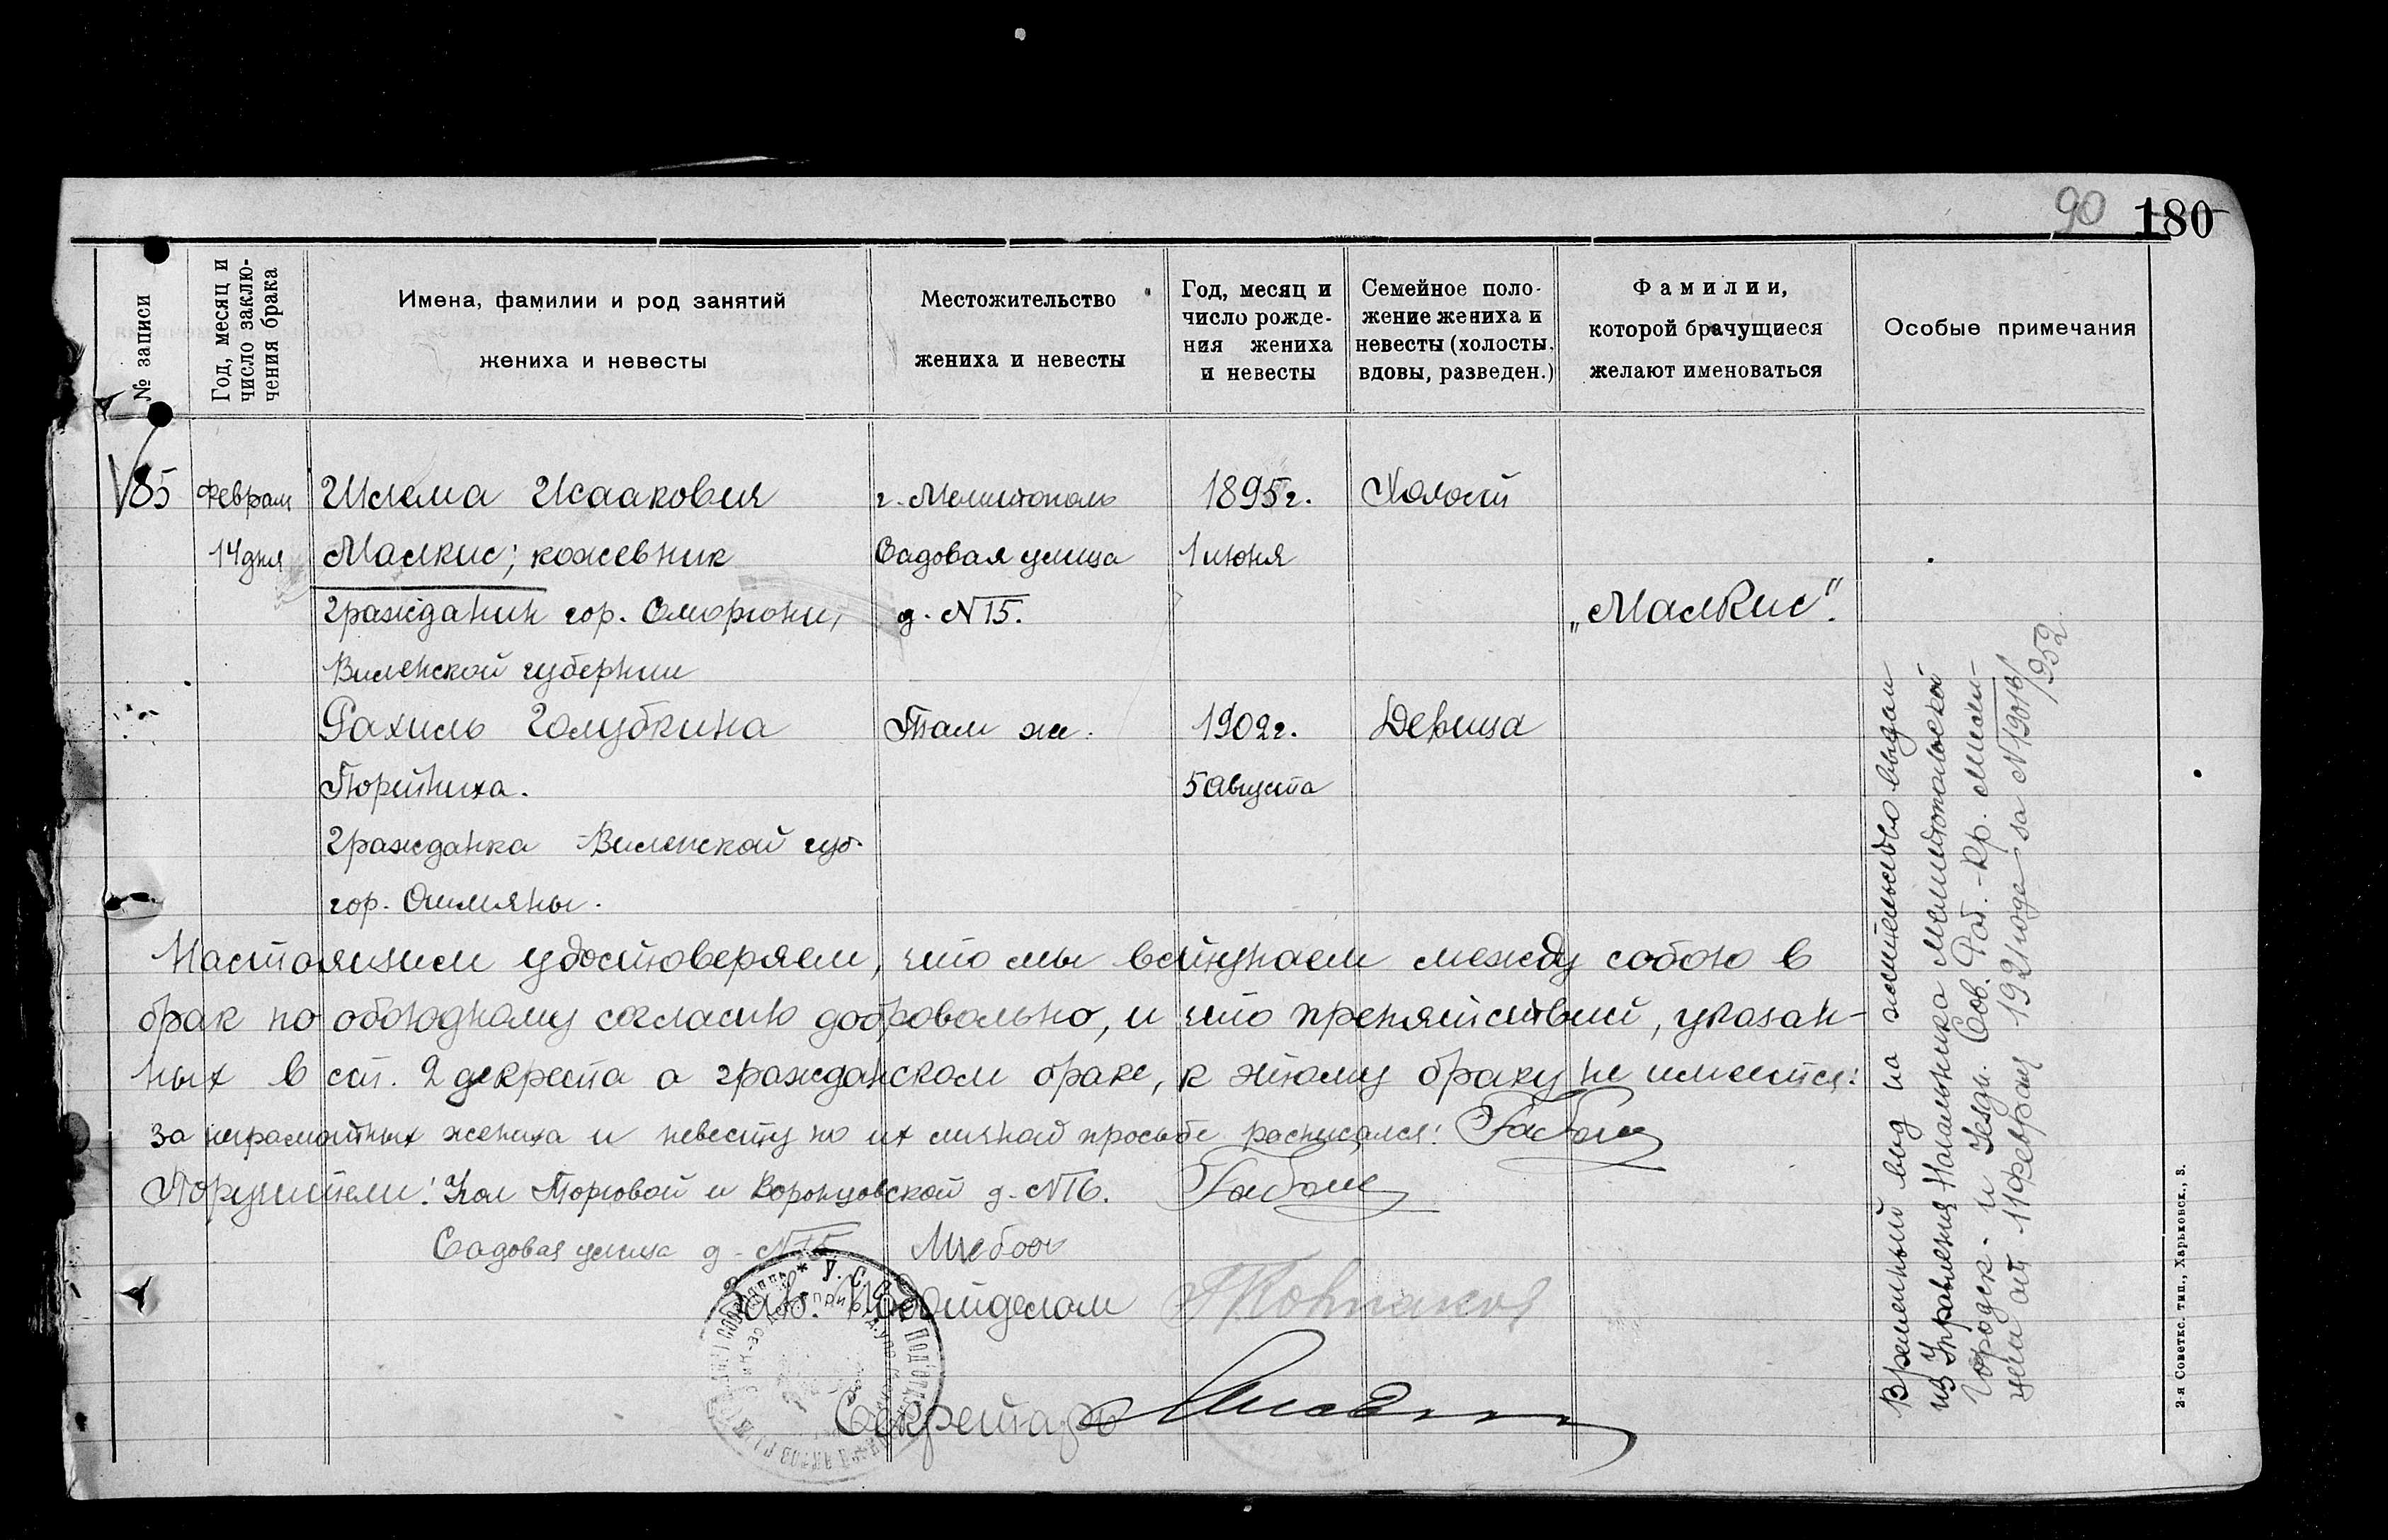 90 180
№ записи
Год, месяц и
число заклю-
чения брака
Имена, фамилии и род занятий
жениха и невесты
Местожительство
жениха и невесты
Год, месяц и
число рожде-
ния жениха
и невесты
Семейное поло-
жение жениха и
невесты (холосты,
вдовы, разведен.)
Фамилии,
которой брачущиеся
желают именоваться
Особые примечания
85 Февраля Шлема Исаакович г. Мелитополь 1895 г. Холост
14 дня Малкис; кожевник Садовая улица 1 июня
гражданин гор. Сморгони, д. N 15. „Малкис".
Виленской губернии
Рахиль Голубкина Там же. 1902 г. Девица
Портниха. 5 Августа
гражданка Виленской губ.
гор. Ошмяны.
Настоящим удостоверяем, что мы вступаем между собою в
брак по обоюдному согласию добровольно, и что препятствий, указан-
ных в ст. 2 декрета о гражданском браке, к этому браку не имеется:
За неграмотных жениха и невесту по их личной просьбе расписался:
Поручители: Торговой и Воронцовской д. N 16.
Садовая улица д. N 15
Зав. Подотделом
Секретарь
Временный вид на жительство выдан
из Управления Начальника Мелитопольской
Городск. и Уездн. Сов. Раб.-Кр. Мили-
ции от 11 февраля 1921 года за N
2-я Советск. тип., Харьковск., 3.